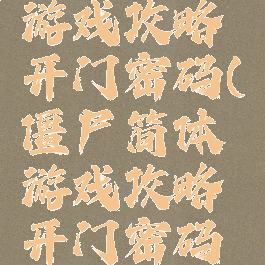 游戏攻略
开门密码(
僵尸简体
游戏攻略
开门密码